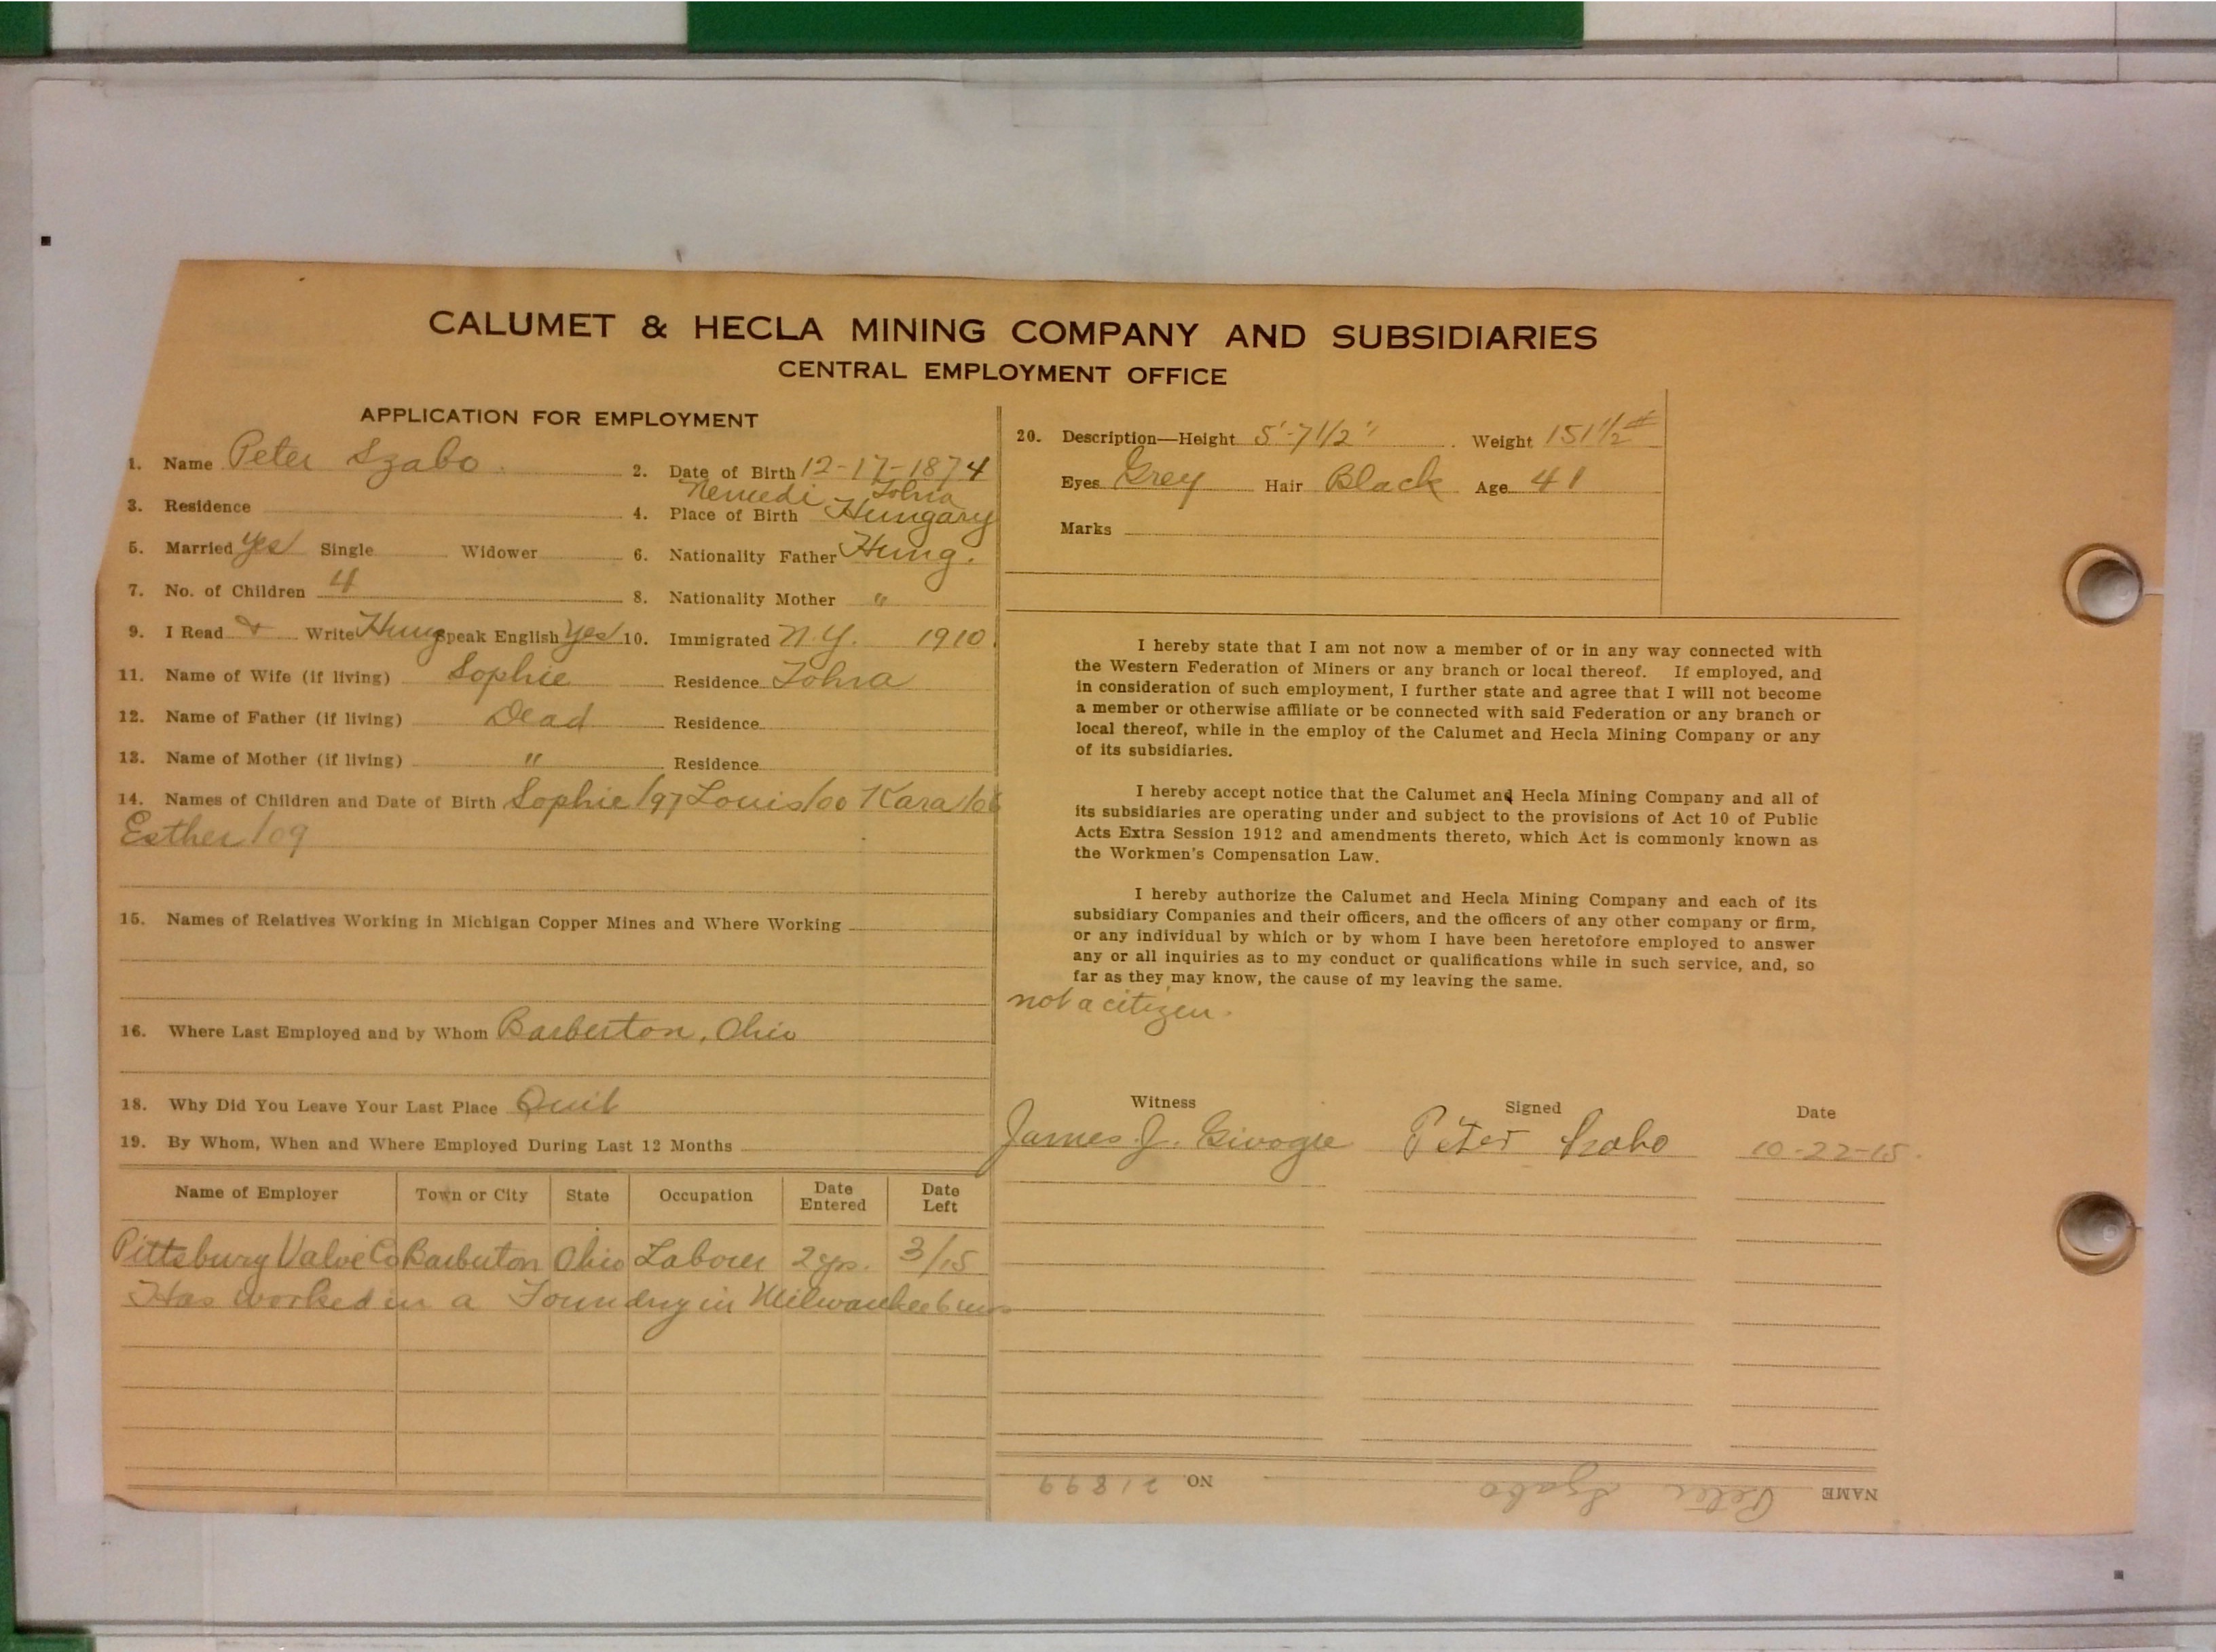 CALUMET & HECLA MINING COMPANY AND SUBSIDIARIES
CENTRAL EMPLOYMENT OFFICE
APPLICATION FOR EMPLOYMENT
1. Name Peter Szabo. 2. Date of Birth 12-17-1874
3. Residence 4. Place of Birth Nemedi Tolna Hungary
5. Married Yes Single Widower 6. Nationality Father Hung.
7. No. of Children 4 8. Nationality Mother "
9. I Read & Write Hung Speak English Yes 10. Immigrated N.Y. 1910.
11. Name of Wife (if living) Sophie Residence Tolna
12. Name of Father (if living) Dead Residence
13. Name of Mother (if living) " Residence
14. Names of Children and Date of Birth Sophie /97 Louis /00 Kara /06
Esther /09
15. Names of Relatives Working in Michigan Copper Mines and Where Working
16. Where Last Employed and by Whom Barberton, Ohio
18. Why Did You Leave Your Last Place Quit
19. By Whom, When and Where Employed During Last 12 Months
Name of Employer Town or City State Occupation Date Entered Date Left
Pittsburg Valve Co Barberton Ohio Laborer 2 yrs. 3/15
Has worked in a Foundry in Milwaukee 6 mos
20. Description—Height 5'-7 1/2" Weight 151 1/2 #
Eyes Grey Hair Black Age 41
Marks
I hereby state that I am not now a member of or in any way connected with
the Western Federation of Miners or any branch or local thereof. If employed, and
in consideration of such employment, I further state and agree that I will not become
a member or otherwise affiliate or be connected with said Federation or any branch or
local thereof, while in the employ of the Calumet and Hecla Mining Company or any
of its subsidiaries.
I hereby accept notice that the Calumet and Hecla Mining Company and all of
its subsidiaries are operating under and subject to the provisions of Act 10 of Public
Acts Extra Session 1912 and amendments thereto, which Act is commonly known as
the Workmen's Compensation Law.
I hereby authorize the Calumet and Hecla Mining Company and each of its
subsidiary Companies and their officers, and the officers of any other company or firm,
or any individual by which or by whom I have been heretofore employed to answer
any or all inquiries as to my conduct or qualifications while in such service, and, so
far as they may know, the cause of my leaving the same.
not a citizen.
Witness Signed Date
James J. Peter Szabo 10-22-15.
NAME Peter Szabo NO. 21899